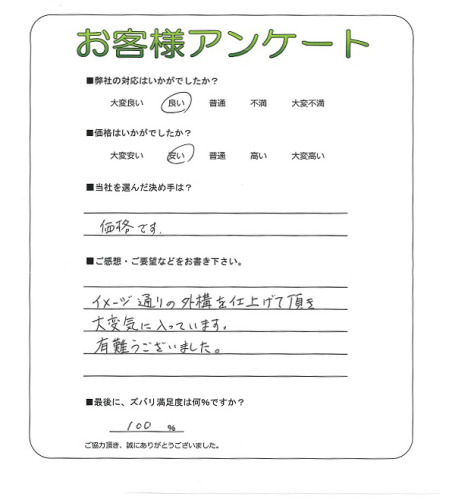 お客様アンケート
■弊社の対応はいかがでしたか？
大変良い 良い 普通 不満 大変不満
■価格はいかがでしたか？
大変安い 安い 普通 高い 大変高い
■当社を選んだ決め手は？
価格です.
■ご感想・ご要望などをお書き下さい。
イメージ通りの外構を仕上げて頂き
大変気に入っています。
有難うございました。
■最後に、ズバリ満足度は何%ですか？
100 %
ご協力頂き、誠にありがとうございました。